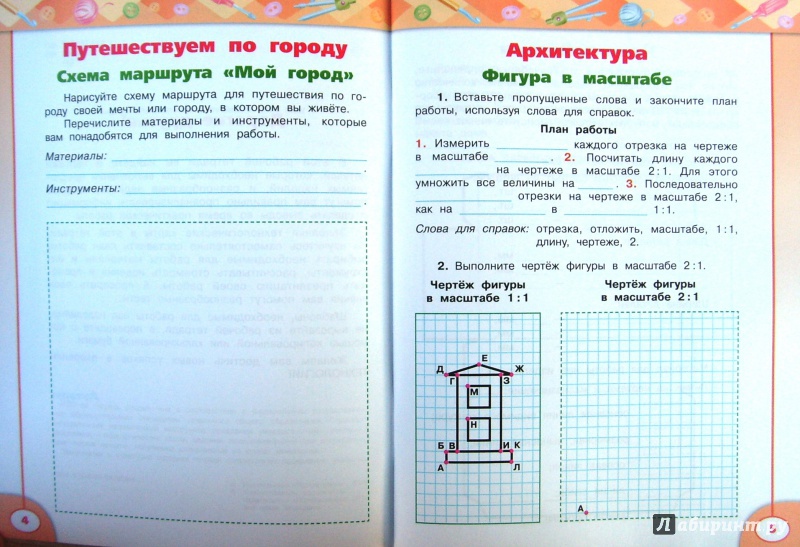 Путешествуем по городу
Схема маршрута «Мой город»
Нарисуйте схему маршрута для путешествия по го-
роду своей мечты или городу, в котором вы живёте.
Перечислите материалы и инструменты, которые
вам понадобятся для выполнения работы.
Материалы:
Инструменты:
4
Архитектура
Фигура в масштабе
1. Вставьте пропущенные слова и закончите план
работы, используя слова для справок.
План работы
1. Измерить ________ каждого отрезка на чертеже
в масштабе ________. 2. Посчитать длину каждого
________ на чертеже в масштабе 2:1. Для этого
умножить все величины на ____. 3. Последовательно
________ отрезки на чертеже в масштабе 2:1,
как на ________ в ________ 1:1.
Слова для справок: отрезка, отложить, масштабе, 1:1,
длину, чертеже, 2.
2. Выполните чертёж фигуры в масштабе 2:1.
Чертёж фигуры
в масштабе 1:1
Чертёж фигуры
в масштабе 2:1
Е
Д Ж
Г З
М
Н
Б В И К
А Л
А
Лабиринт.ру